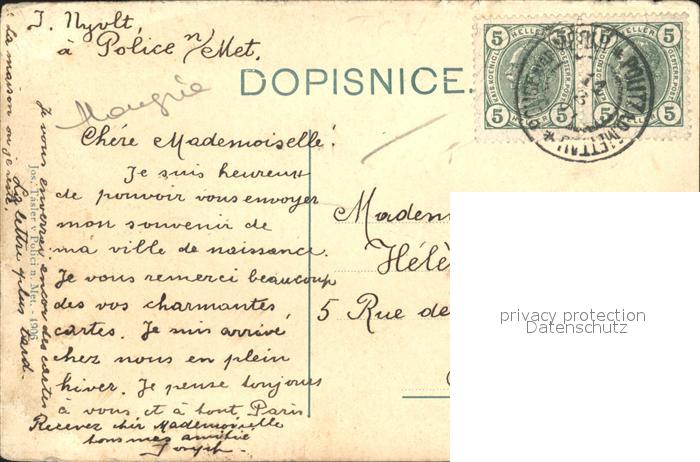 J. Nyvlt,
à Police n/Met.
DOPISNICE.
5 HELLER 5
5 5
5 HELLER 5
5 5
POLITZ AD METTAU
Chére Mademoiselle!
Je suis heureux
de pouvoir vous envoyer
mon souvenir de
ma ville de naissance.
Je vous remerci beaucoup
des vos charmantes
cartes. Je suis arrivé
chez nous en plein
hiver. Je pense toujours
à vous et à tout Paris
Recevez chèr Mademoiselle
tous mes amitié
Joseph
Je vous enverrai encor des cartes
La maison ou je reste.
La lettre plus tard.
Jos. Tásler v Polici n. Met. - 1905
Madem
Hélè
5 Rue de
privacy protection
Datenschutz